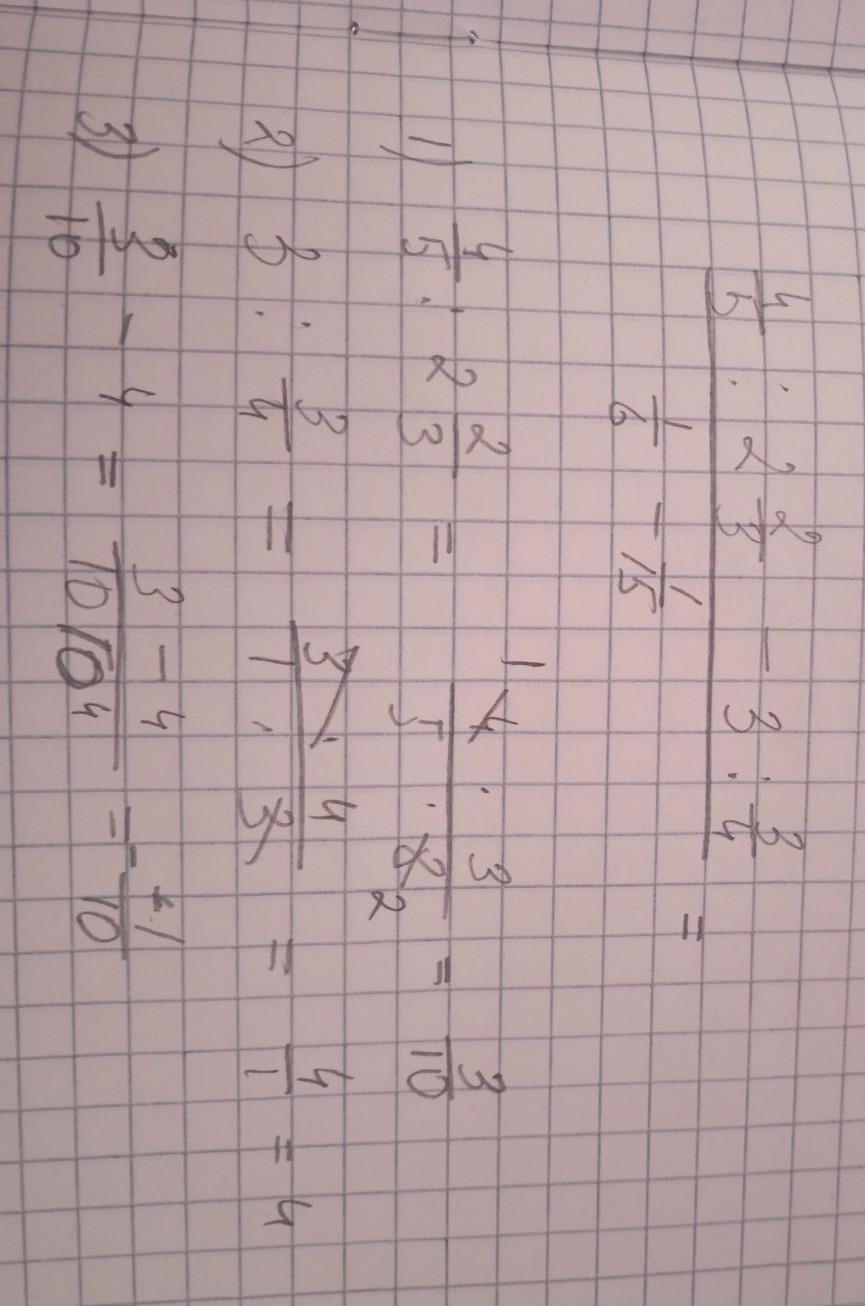 4/5 : 2 2/3 - 3 : 3/4
――――――――― =
1/6 - 1/15
1) 4/5 : 2 2/3 = (4 · 3)/(5 · 8) 1 2 = 3/10
2) 3 : 3/4 = (3 · 4)/(1 · 3) = 4/1 = 4
3) 3/10 - 4 = (3 - 4)/10 = - 1/10